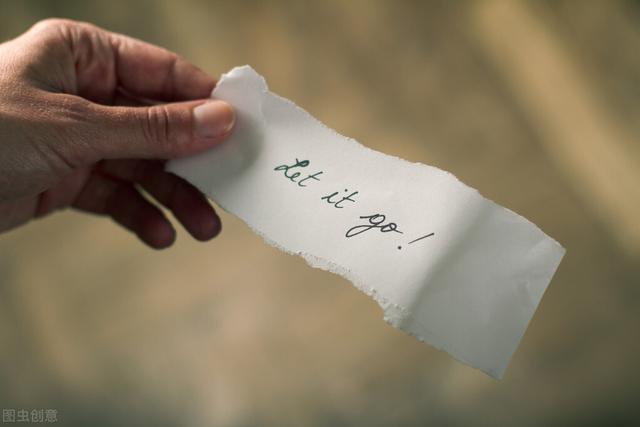 Let it go!
图虫创意